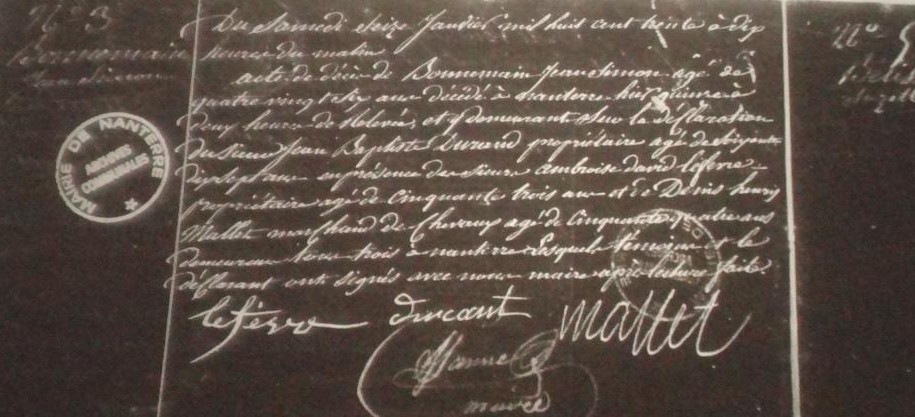 N.º 3
Bonnemain
Jean Simon
Du Samedi Seize Janvier mil huit cent trente à dix
heures du matin
acte de décès de Bonnemain Jean Simon agé de
quatre vingt six ans décédé à nanterre hier quinze à
deux heures de relevée, et y demeurant Sur la déclaration
du Sieur Jean Baptiste Durand propriétaire agé de Soixante
dix sept ans en présence des Sieurs ambroise david lefevre
propriétaire agé de Cinquante trois ans et de Denis henry
Mallet marchand de Chevaux agé de Cinquante quatre ans
demeurans tous trois à nanterre Lesquels témoins et le
déclarant ont signés avec nous maire après lecture faite.
lefevre durant Mallet
maire
MAIRIE DE NANTERRE
ARCHIVES
COMMUNALES
N.º